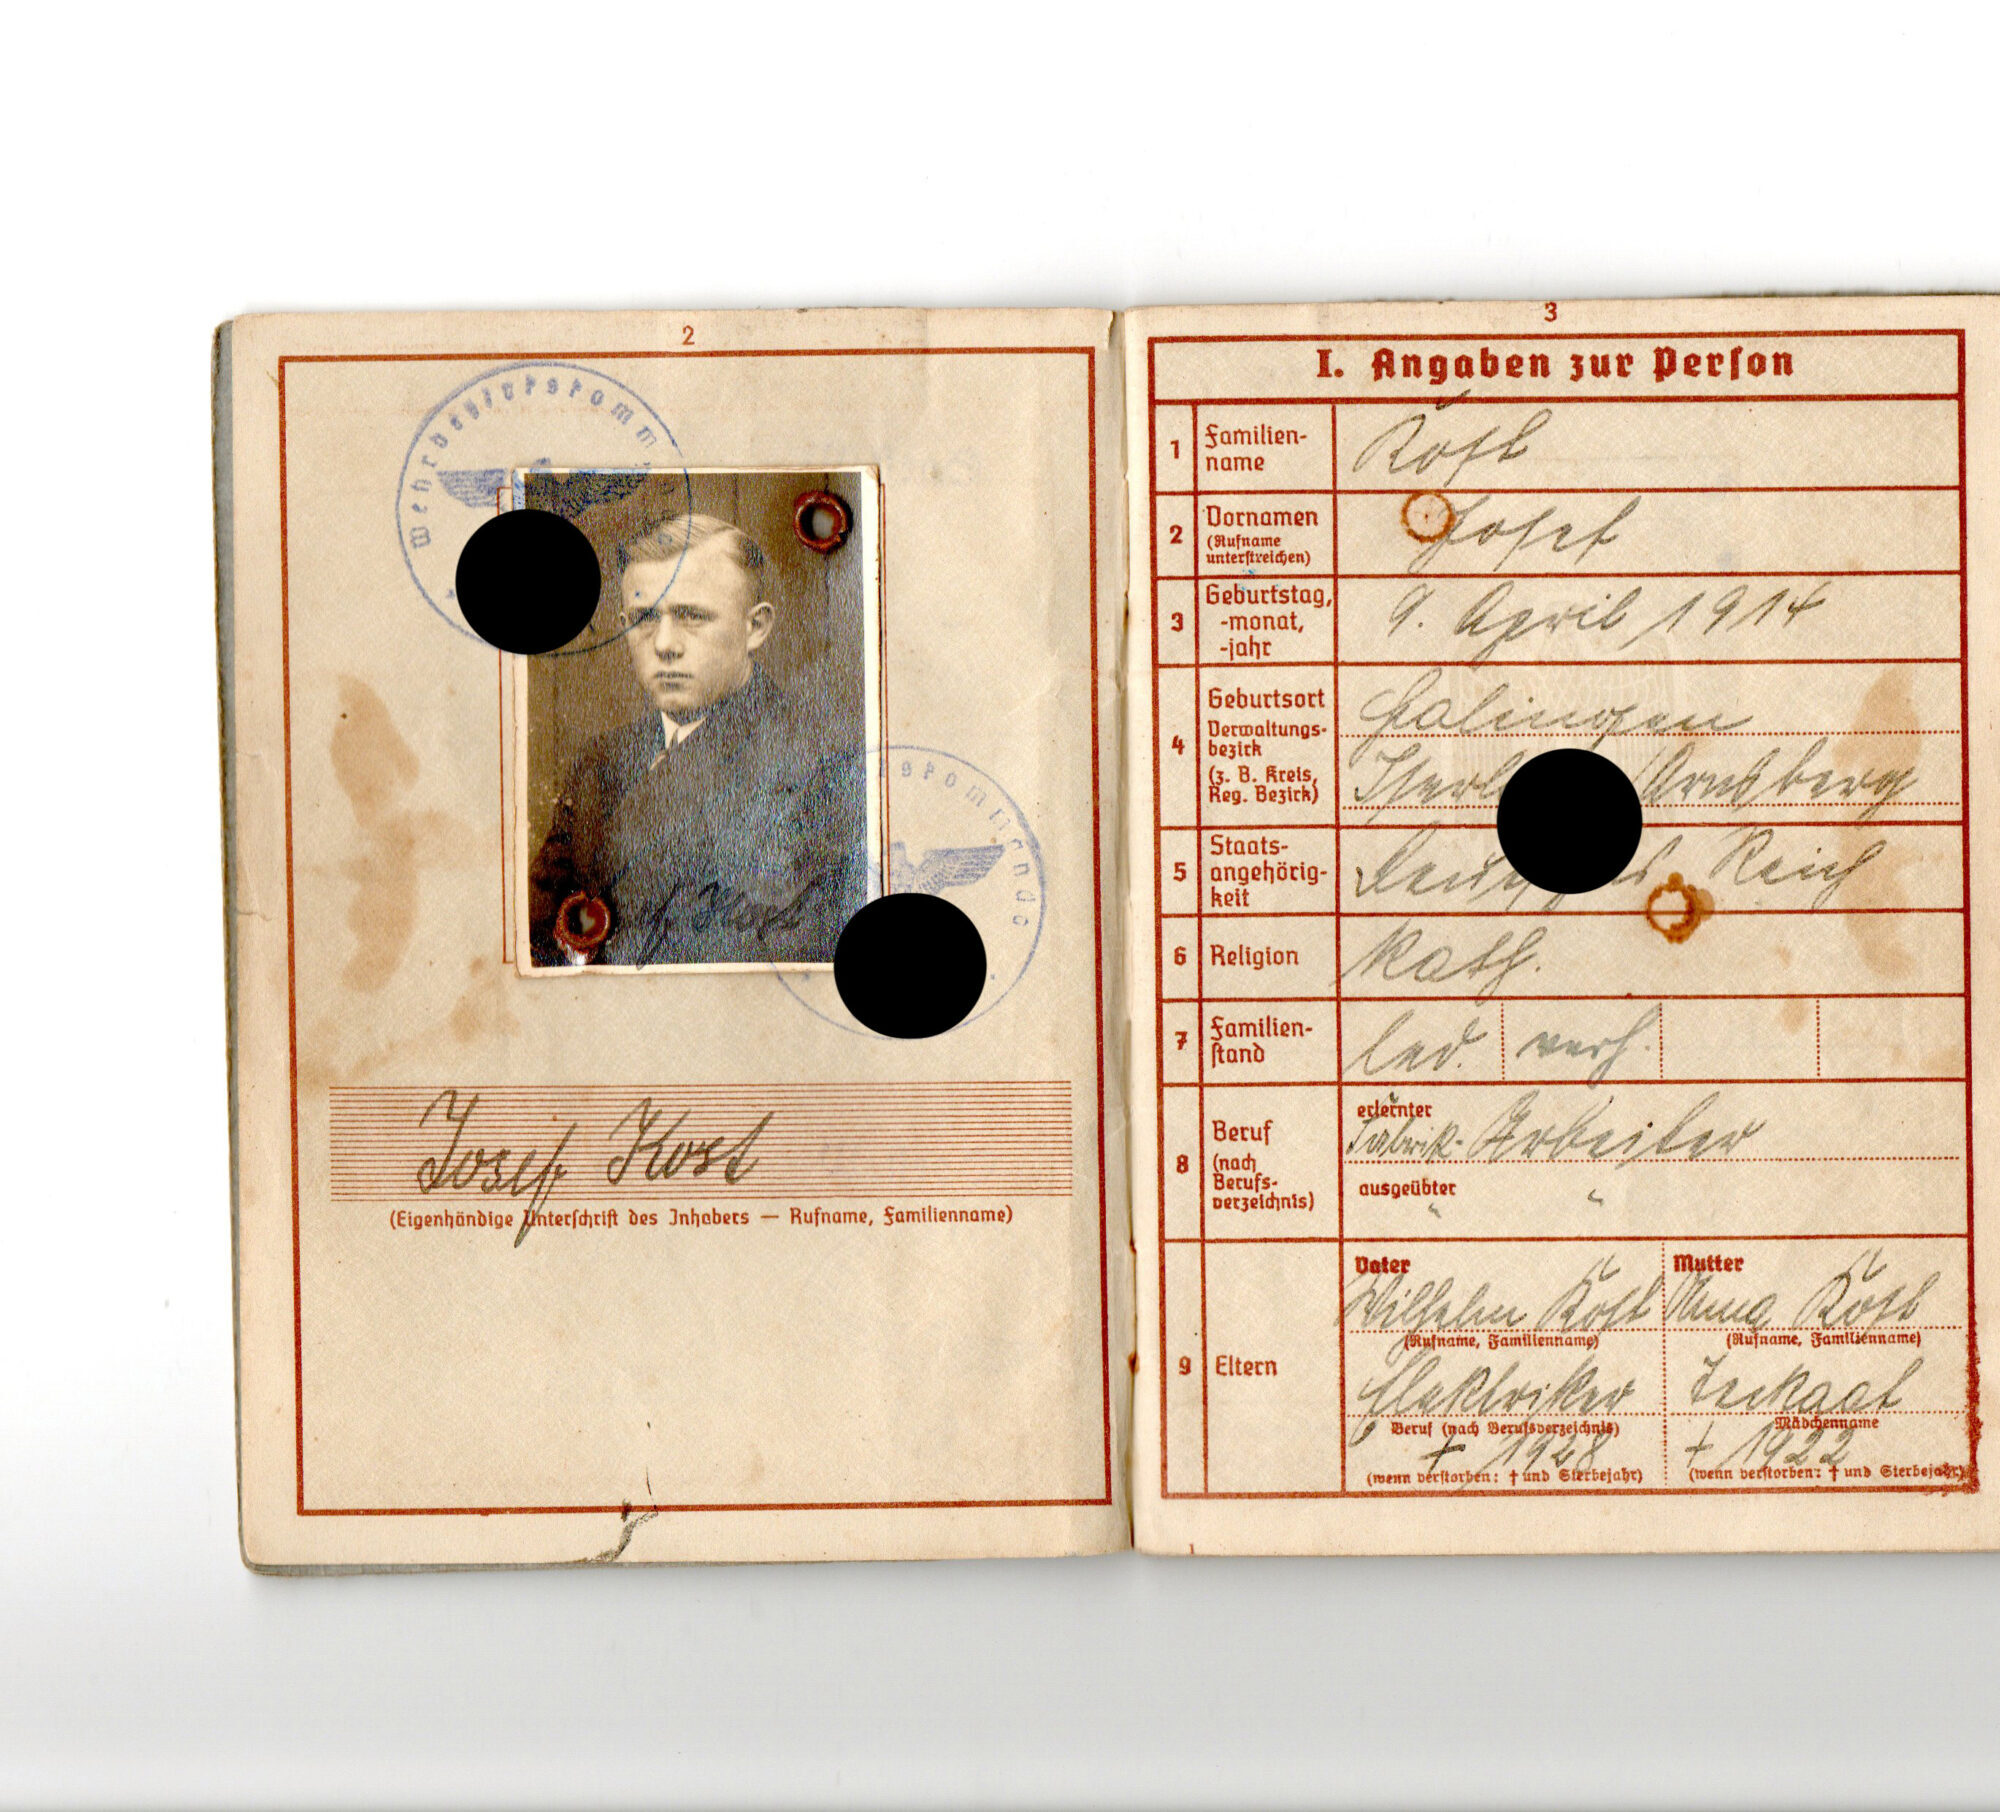 2
Wehrbezirkskomm
J. Kost
Josef Kost
(Eigenhändige Unterschrift des Inhabers — Rufname, Familienname)
3
I. Angaben zur Person
1 Familien-
name
Kost
2 Vornamen
(Rufname
unterstreichen)
Josef
3 Geburtstag,
-monat,
-jahr
9. April 1914
4 Geburtsort
Verwaltungs-
bezirk
(z. B. Kreis,
Reg. Bezirk)
Halingen
Arnsberg
5 Staats-
angehörig-
keit
Reich
6 Religion
kath.
7 Familien-
stand
led. verh.
8 Beruf
(nach
Berufs-
verzeichnis)
erlernter
Fabrik-Arbeiter
ausgeübter
" "
9 Eltern
Vater
Wilhelm Kost
(Rufname, Familienname)
Elektriker
Beruf (nach Berufsverzeichnis)
† 1928
(wenn verstorben: † und Sterbejahr)
Mutter
Anna Kost
(Rufname, Familienname)
Mädchenname
† 1922
(wenn verstorben: † und Sterbejahr)
1